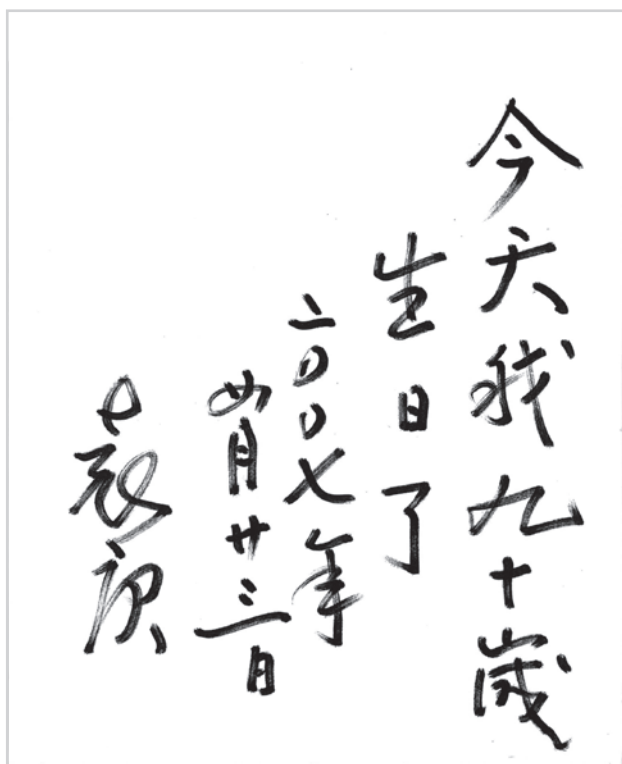 今天我九十歲
生日了
二〇〇七年
四月廿三日
袁庚